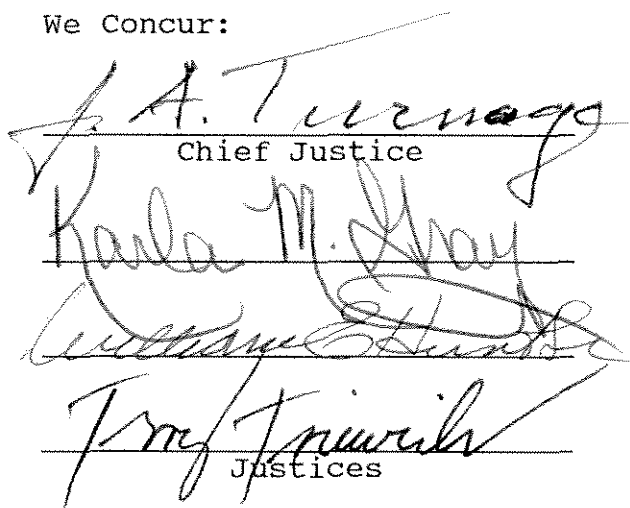 We Concur:
J. A. Turnage
Chief Justice
Karla M. Gray
William E Hunt Sr
Terry Trieweiler
Justices